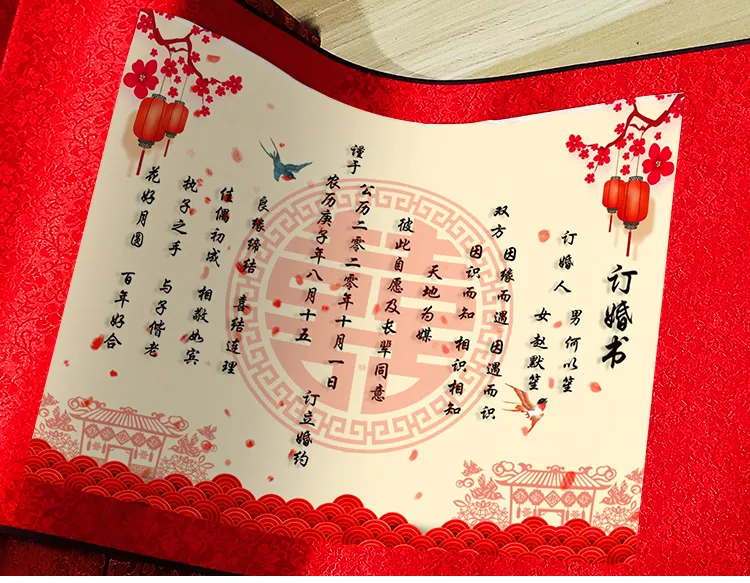 订婚书
订婚人 男 何以笙
女 赵默笙
双方 因缘而遇 因遇而识
因识而知 相识相知
天地为媒
彼此自愿及长辈同意
谨于 公历二零二零年十月一日
农历庚子年八月十五 订立婚约
良缘缔结 喜结连理
佳偶初成 相敬如宾
执子之手 与子偕老
花好月圆 百年好合
囍